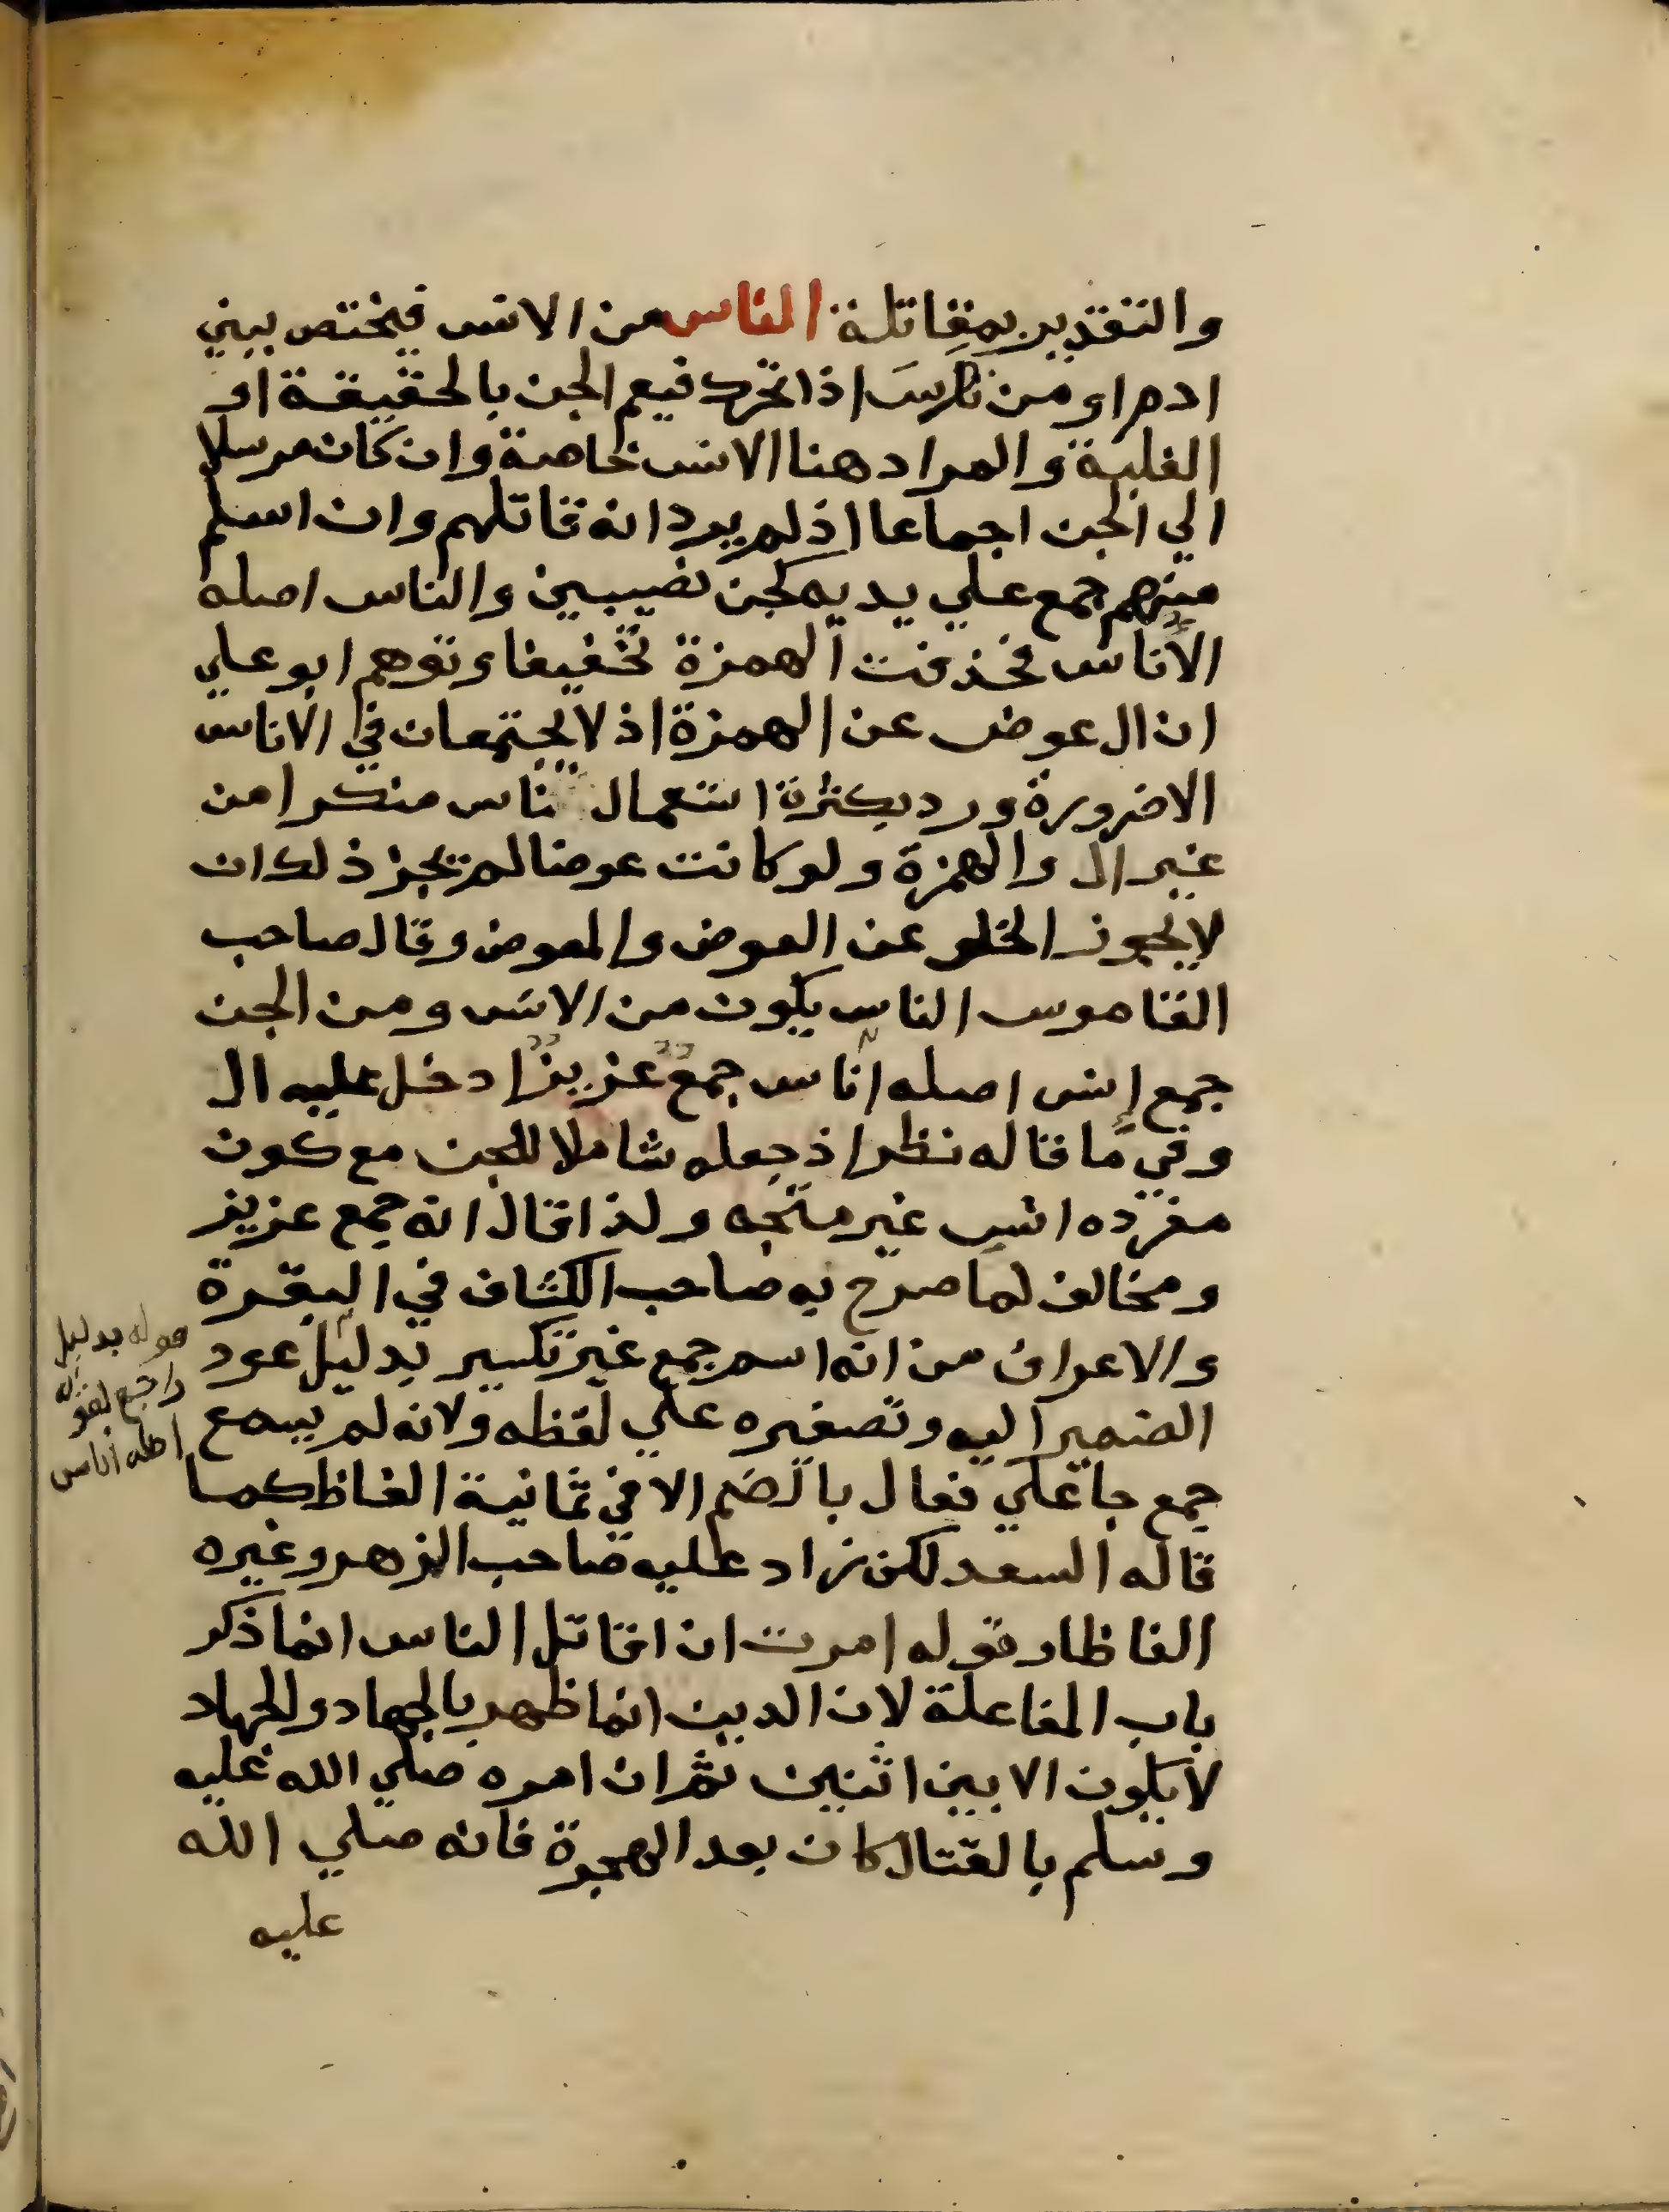 والتقدير بمقاتلة الناس من الانس فيختص ببني
ادم او من ناس اذا تحرك فيعم الجن بالحقيقة او
الغلبة والمراد هنا الانس خاصة وان كان مرسلا
الي الجن اجماعا اذ لم يرد انه قاتلهم وان اسلم
منهم جمع علي يديه كجن نصيبين والناس اصله
الأناس فحذفت الهمزة تخفيفا وتوهم ابو علي
ان ال عوض عن الهمزة اذ لا يجتمعان في الاناس
الا ضرورة ورد بكثرة استعمال ناس منكرا من
غير ال والهمزة ولو كانت عوضا لم يجز ذلك ان
لا يجوز الخلو عن العوض والمعوض وقال صاحب
القاموس الناس يكون من الانس ومن الجن
جمع إنس اصله اناس جمع عزيز ادخل عليه ال
وفي ما قاله نظر اذ جعله شاملا للجن مع كون
مفرده انس غير متجه ولذا قال انه جمع عزيز
ومخالف لما صرح به صاحب الكشاف في البقرة
والاعراف من انه اسم جمع غير تكسير بدليل عود
الضمير اليه وتصغيره علي لفظه ولانه لم يسمع
جمع جا علي فعال بالضم الا في ثمانية الفاظ كما
قاله السعد لكن زاد عليه صاحب الزهر وغيره
الفاظا وقوله امرت ان اقاتل الناس انما ذكر
باب المفاعلة لان الدين انما ظهر بالجهاد والجهاد
لا يكون الا بين اثنين ثم ان امره صلي الله عليه
وسلم بالقتال كان بعد الهجرة فانه صلي الله
عليه
قوله بدليل
راجع لقوله
اصله اناس